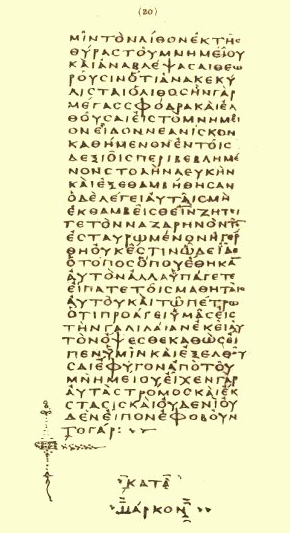 (20)
ΜΙΝΤΟΝΛΙΘΟΝΕΚΤΗϹ
ΘΥΡΑϹΤΟΥΜΝΗΜΕΙΟΥ
ΚΑΙΑΝΑΒΛΕΨΑϹΑΙΘΕΩ
ΡΟΥϹΙΝΟΤΙΑΝΑΚΕΚΥ
ΛΙϹΤΑΙΟΛΙΘΟϹΗΝΓΑΡ
ΜΕΓΑϹϹΦΟΔΡΑΚΑΙΕΛ
ΘΟΥϹΑΙΕΙϹΤΟΜΝΗΜΕΙ
ΟΝΕΙΔΟΝΝΕΑΝΙϹΚΟΝ
ΚΑΘΗΜΕΝΟΝΕΝΤΟΙϹ
ΔΕΞΙΟΙϹΠΕΡΙΒΕΒΛΗΜΕ
ΝΟΝϹΤΟΛΗΝΛΕΥΚΗΝ
ΚΑΙΕΞΕΘΑΜΒΗΘΗϹΑΝ
ΟΔΕΛΕΓΕΙΑΥΤΑΙϹΜΗ
ΕΚΘΑΜΒΕΙϹΘΕΙΝΖΗΤΕΙ
ΤΕΤΟΝΝΑΖΑΡΗΝΟΝΤΟ
ΕϹΤΑΥΡΩΜΕΝΟΝΗΓΕΡ
ΘΗΟΥΚΕϹΤΙΝΩΔΕΙΔΕ
ΟΤΟΠΟϹΟΠΟΥΕΘΗΚΑ
ΑΥΤΟΝΑΛΛΑΥΠΑΓΕΤΕ
ΕΙΠΑΤΕΤΟΙϹΜΑΘΗΤΑΙϹ
ΑΥΤΟΥΚΑΙΤΩΠΕΤΡΩ
ΟΤΙΠΡΟΑΓΕΙΥΜΑϹΕΙϹ
ΤΗΝΓΑΛΙΛΑΙΑΝΕΚΕΙΑΥ
ΤΟΝΟΨΕϹΘΕΚΑΘΩϹΕΙ
ΠΕΝΥΜΙΝΚΑΙΕΞΕΛΘΟΥ
ϹΑΙΕΦΥΓΟΝΑΠΟΤΟΥ
ΜΝΗΜΕΙΟΥΕΙΧΕΝΓΑΡ
ΑΥΤΑϹΤΡΟΜΟϹΚΑΙΕΚ
ϹΤΑϹΙϹΚΑΙΟΥΔΕΝΙΟΥ
ΔΕΝΕΙΠΟΝΕΦΟΒΟΥΝ
ΤΟΓΑΡ:
ΚΑΤΑ
ΜΑΡΚΟΝ